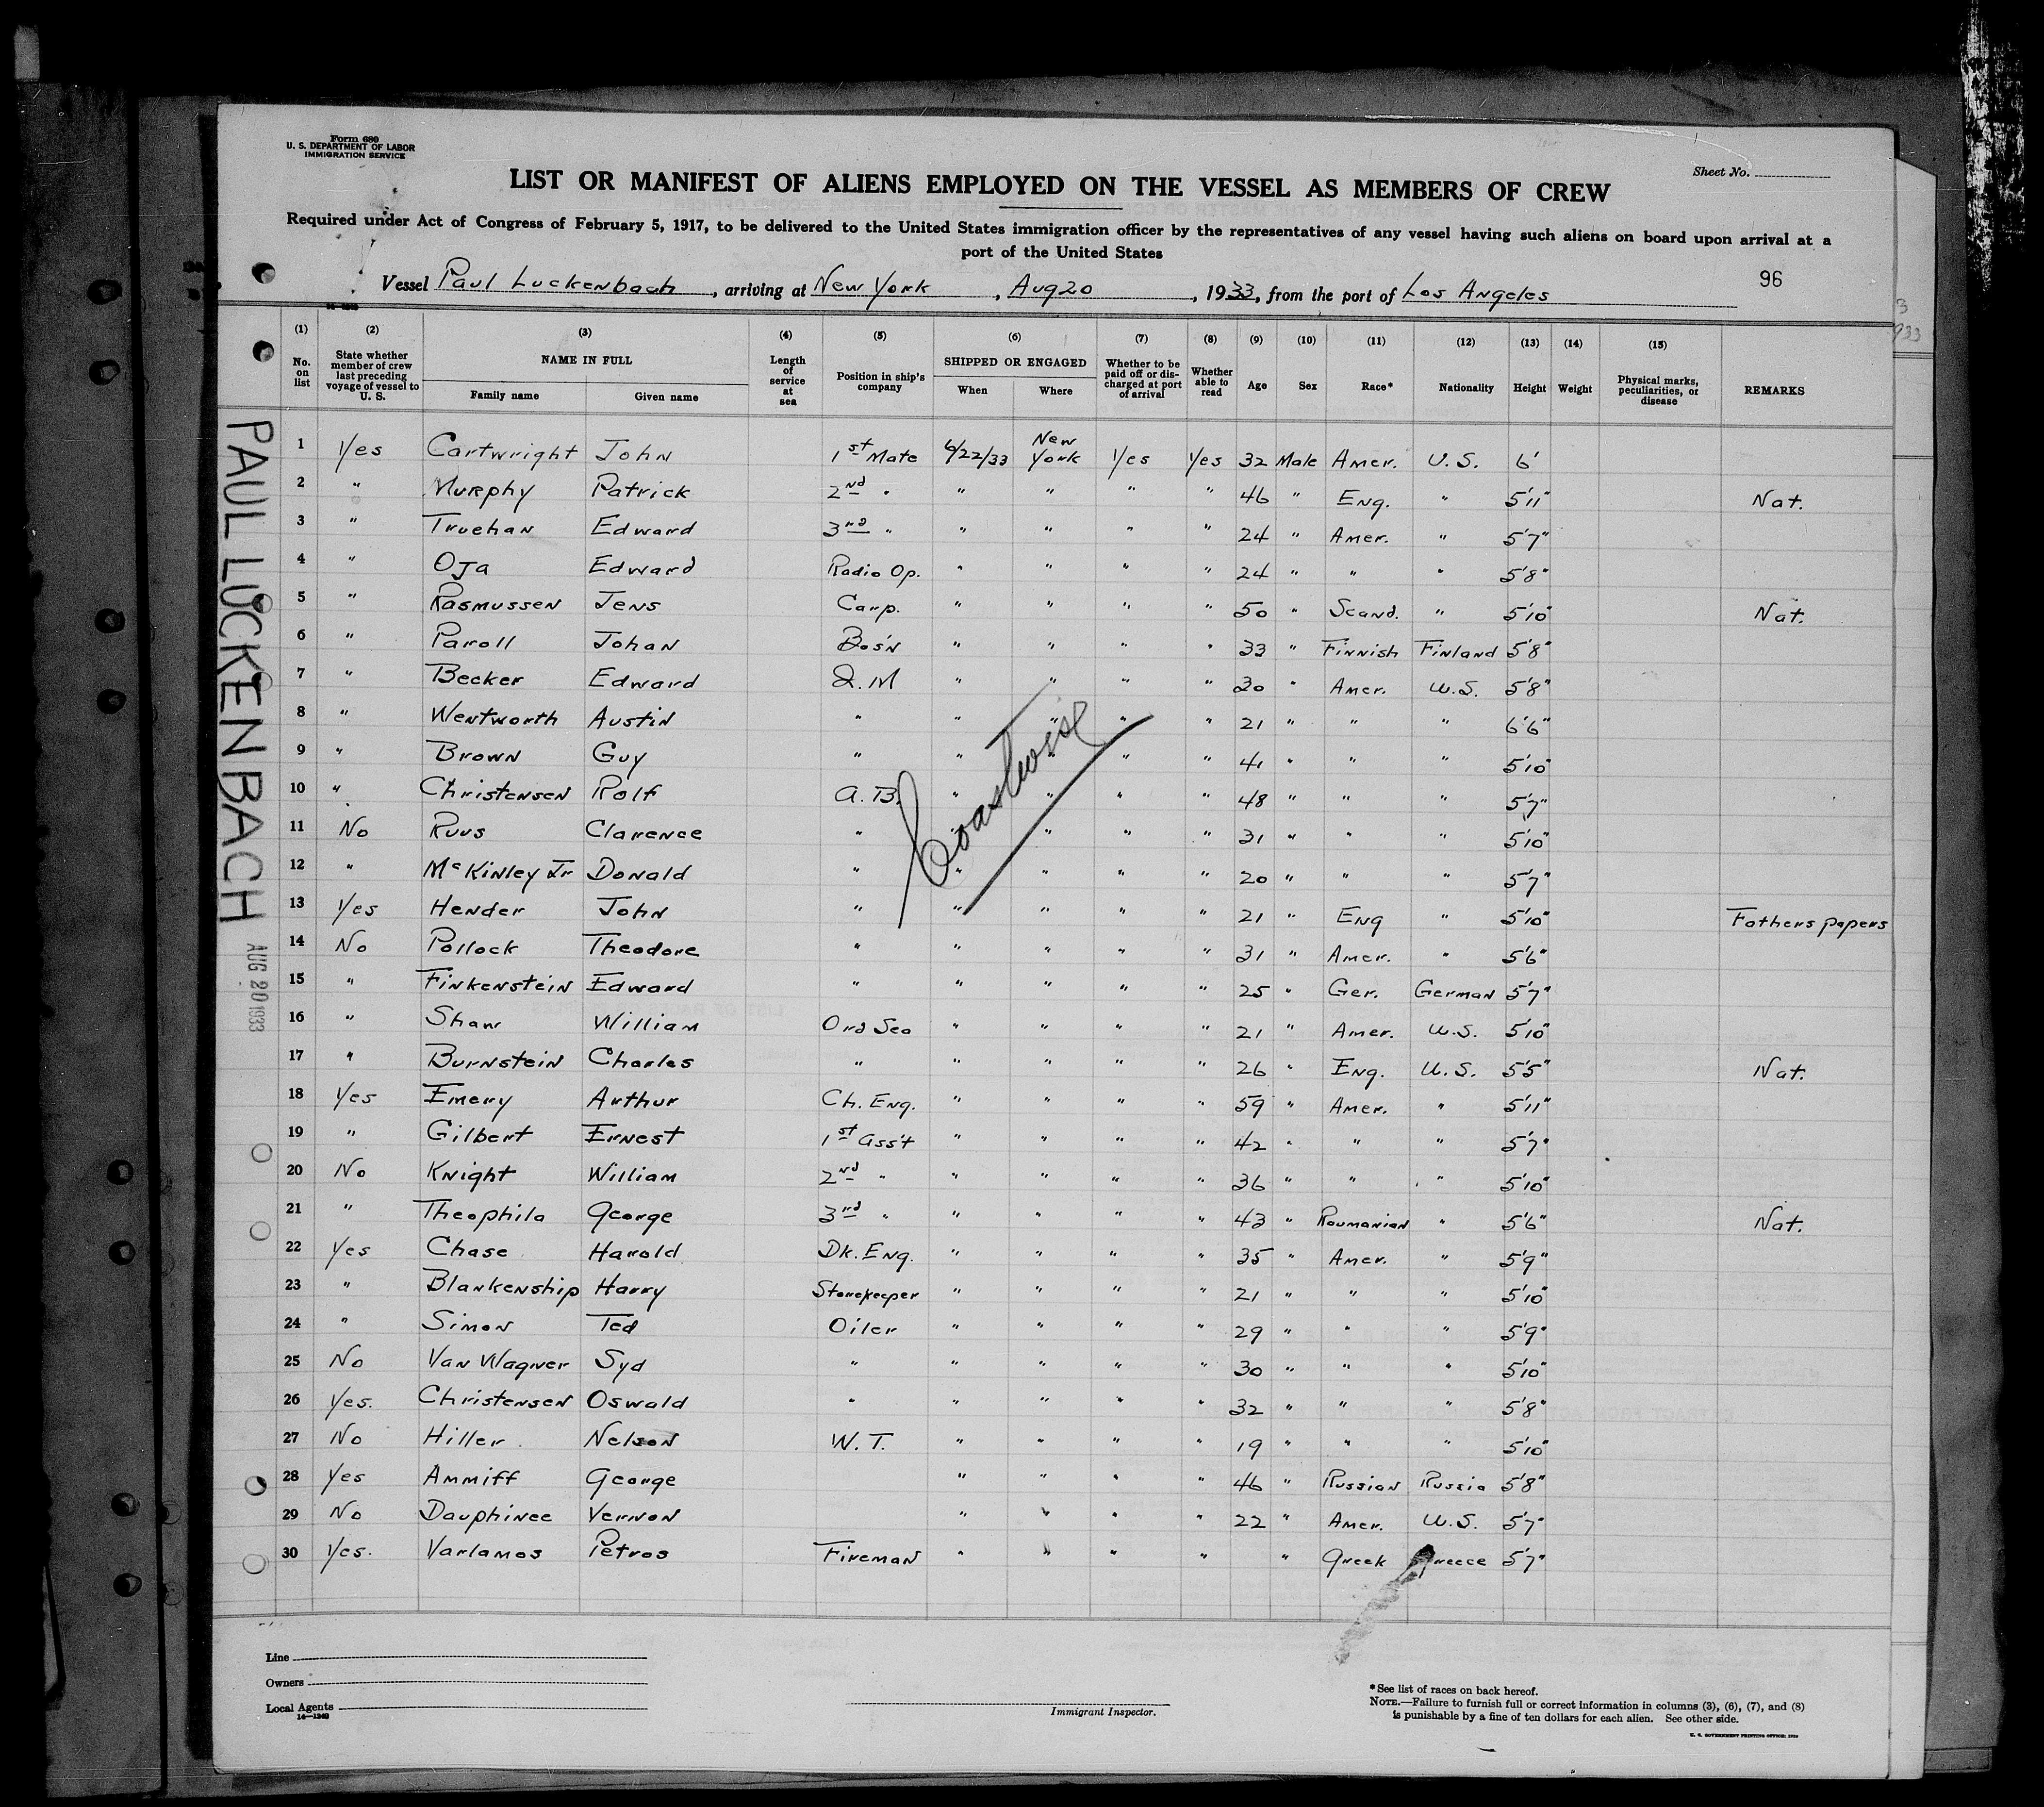 Form 680
U. S. DEPARTMENT OF LABOR
IMMIGRATION SERVICE
Sheet No.
LIST OR MANIFEST OF ALIENS EMPLOYED ON THE VESSEL AS MEMBERS OF CREW
Required under Act of Congress of February 5, 1917, to be delivered to the United States immigration officer by the representatives of any vessel having such aliens on board upon arrival at a
port of the United States
96
Vessel Paul Luckenbach, arriving at New York, Aug 20, 1933, from the port of Los Angeles
(1) (2) (3) (4) (5) (6) (7) (8) (9) (10) (11) (12) (13) (14) (15)
No. on list State whether member of crew last preceding voyage of vessel to U. S. NAME IN FULL Family name Given name Length of service at sea Position in ship's company SHIPPED OR ENGAGED When Where Whether to be paid off or discharged at port of arrival Whether able to read Age Sex Race* Nationality Height Weight Physical marks, peculiarities, or disease REMARKS
1 Yes Cartwright John 1st Mate 6/22/33 New York Yes Yes 32 Male Amer. U.S. 6'
2 " Murphy Patrick 2nd " " " " " 46 " Eng. " 5'11" Nat.
3 " Truehan Edward 3rd " " " " " 24 " Amer. " 5'7"
4 " Oja Edward Radio Op. " " " " 24 " " " 5'8"
5 " Rasmussen Jens Carp. " " " " 50 " Scand. " 5'10" Nat.
6 " Paroll Johan Bos'n " " " " 33 " Finnish Finland 5'8"
7 " Becker Edward Q.M " " " " 30 " Amer. U.S. 5'8"
8 " Wentworth Austin " " " " " 21 " " " 6'6"
9 " Brown Guy " " " " " 41 " " " 5'10"
10 " Christensen Rolf A.B. " " " " 48 " " " 5'7"
11 No Ruus Clarence " " " " " 31 " " " 5'10"
12 " McKinley Jr Donald " " " " " 20 " " " 5'7"
13 Yes Hender John " " " " " 21 " Eng " 5'10" Fathers papers
14 No Pollock Theodore " " " " " 31 " Amer. " 5'6"
15 " Finkenstein Edward " " " " " 25 " Ger. German 5'7"
16 " Shaw William Ord Sea " " " " 21 " Amer. U.S. 5'10"
17 " Burnstein Charles " " " " " 26 " Eng. U.S. 5'5" Nat.
18 Yes Emery Arthur Ch. Eng. " " " " 59 " Amer. " 5'11"
19 " Gilbert Ernest 1st Ass't " " " " 42 " " " 5'7"
20 No Knight William 2nd " " " " " 36 " " " 5'10"
21 " Theophila George 3rd " " " " " 43 " Roumanian " 5'6" Nat.
22 Yes Chase Harold Dk. Eng. " " " " 35 " Amer. " 5'9"
23 " Blankenship Harry Storekeeper " " " " 21 " " " 5'10"
24 " Simon Ted Oiler " " " " 29 " " " 5'9"
25 No Van Wagner Syd " " " " " 30 " " " 5'10"
26 Yes. Christensen Oswald " " " " " 32 " " " 5'8"
27 No Hiller Nelson W.T. " " " " 19 " " " 5'10"
28 Yes Ammiff George " " " " 46 " Russian Russia 5'8"
29 No Dauphinee Vernon " " " " 22 " Amer. U.S. 5'7"
30 Yes. Varlamos Petros Fireman " " " " " Greek Greece 5'7"
Coastwise
PAUL LUCKENBACH
AUG 20 1933
Line
Owners
Local Agents
14—1240
Immigrant Inspector.
*See list of races on back hereof.
NOTE.—Failure to furnish full or correct information in columns (3), (6), (7), and (8)
is punishable by a fine of ten dollars for each alien. See other side.
U. S. GOVERNMENT PRINTING OFFICE: